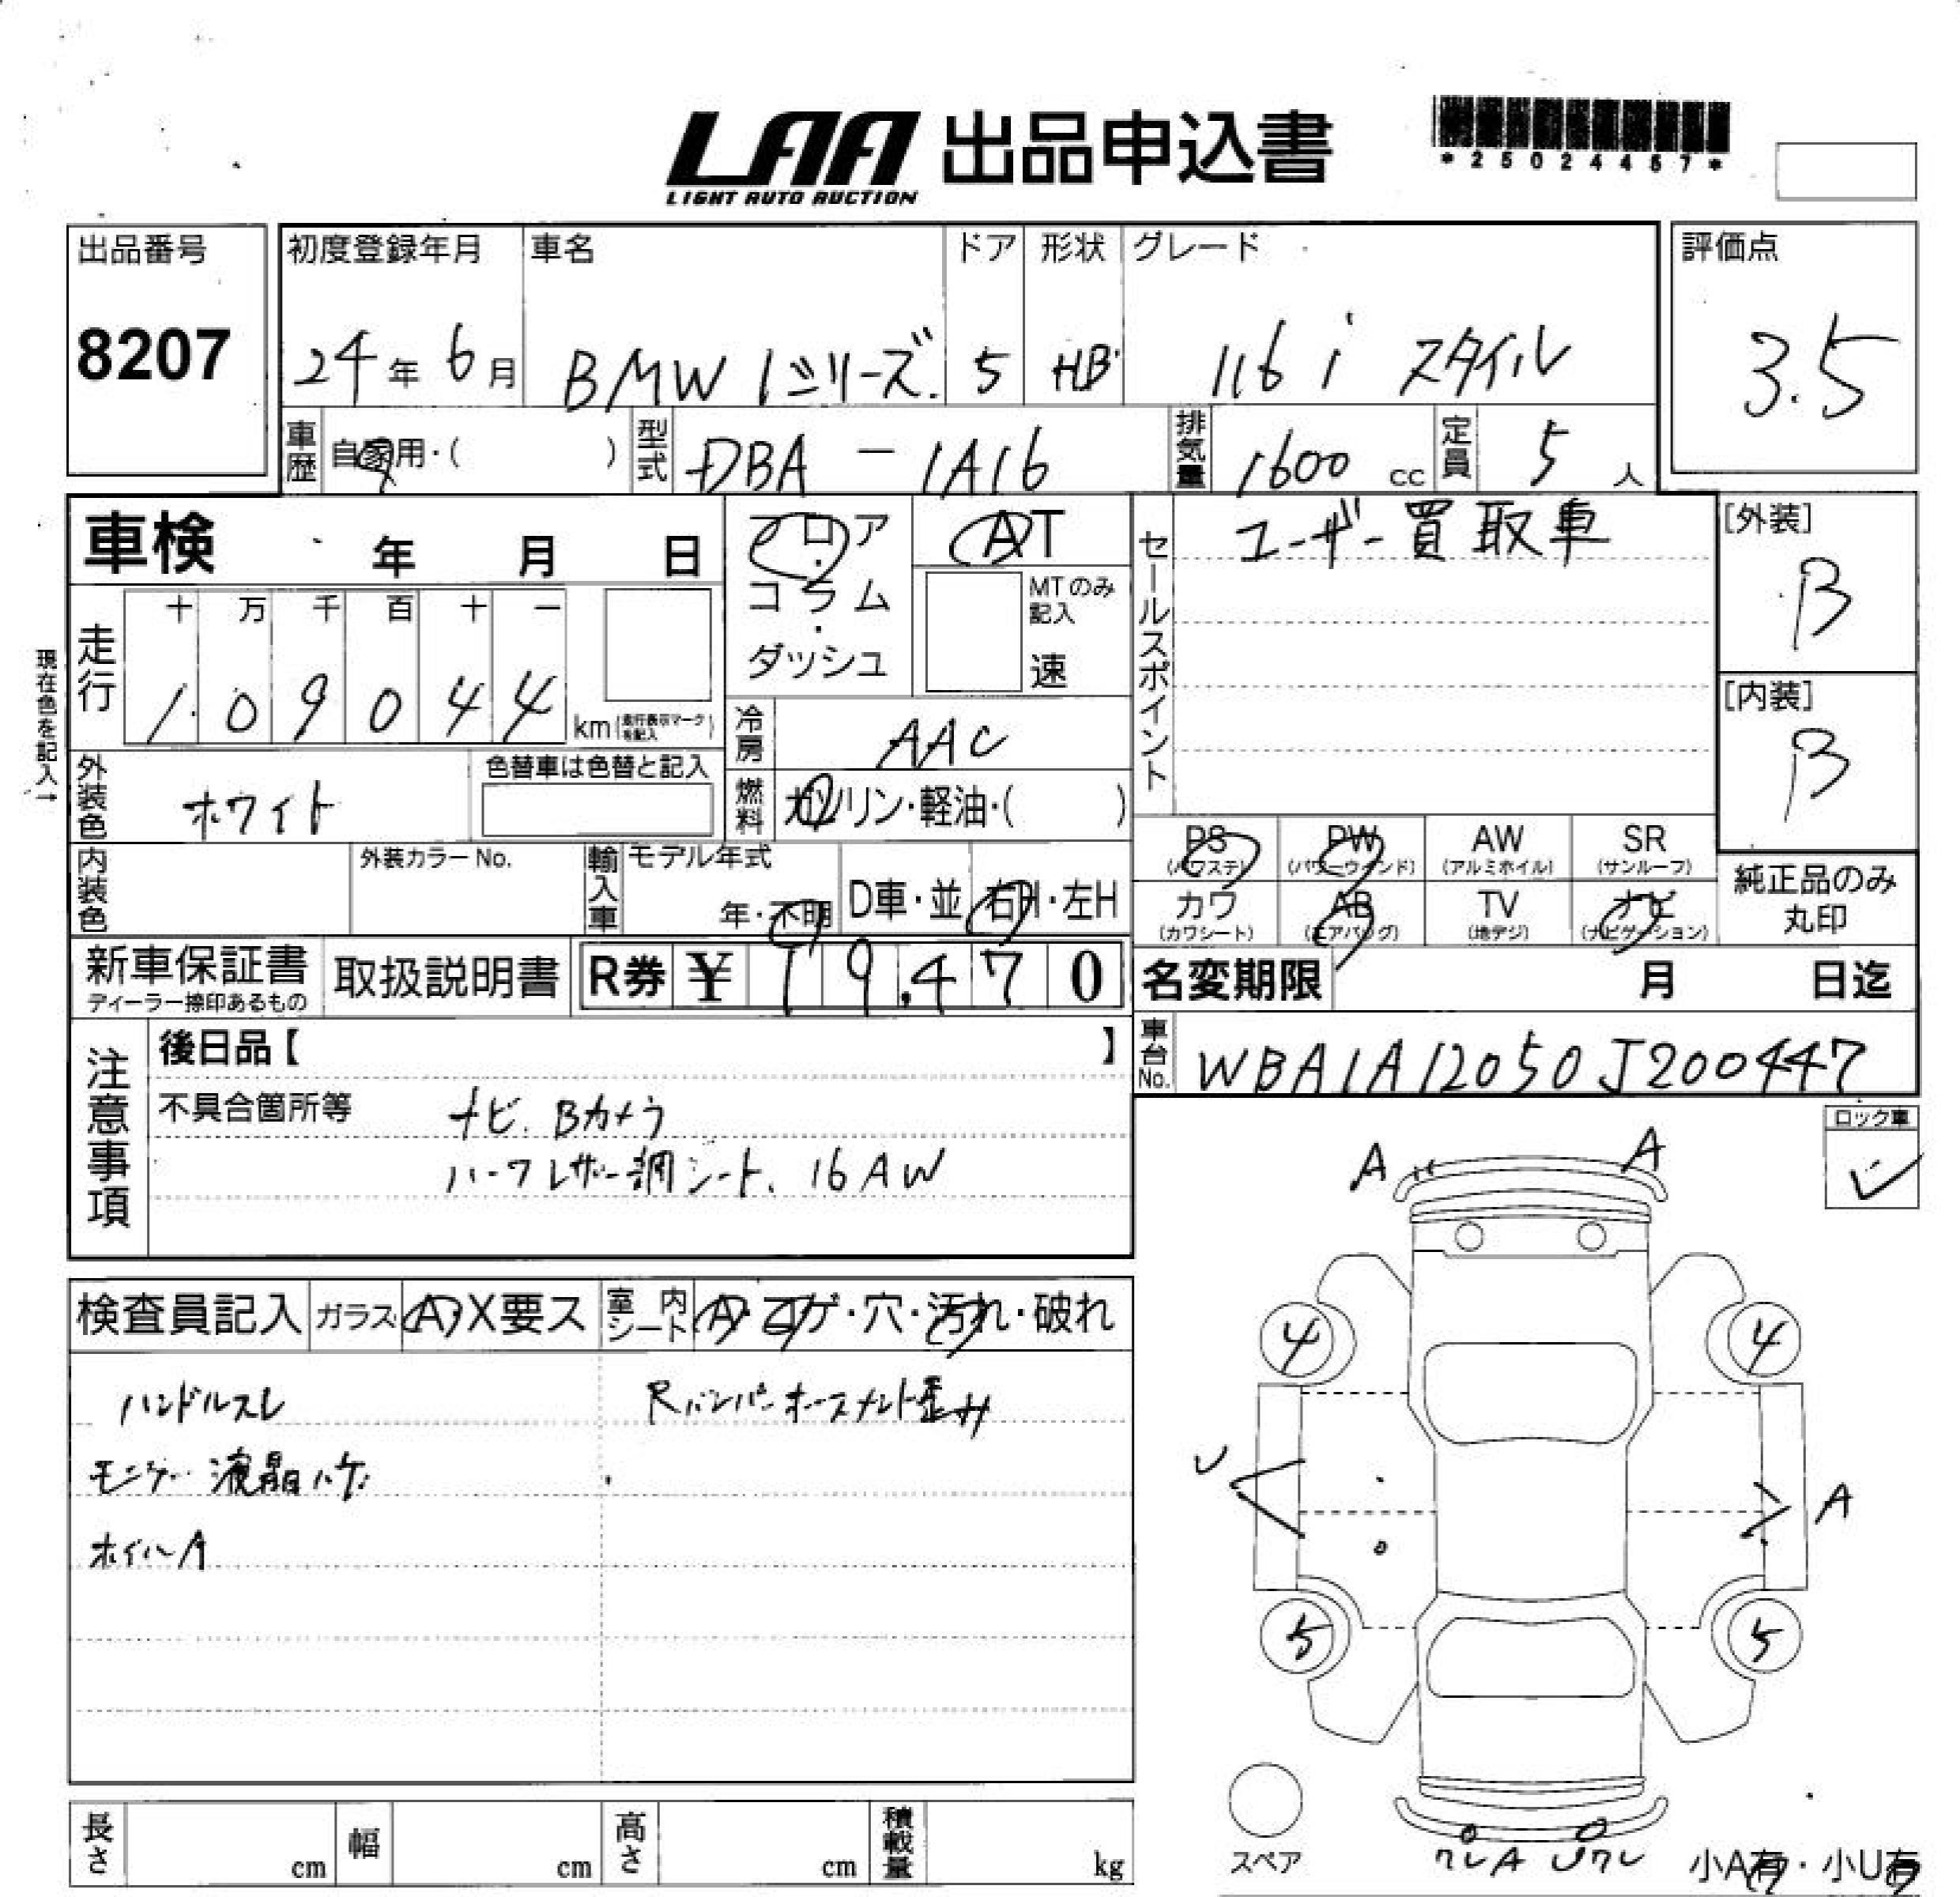 LAA 出品申込書
LIGHT AUTO AUCTION
*25024457*
出品番号 初度登録年月 車名 ドア 形状 グレード 評価点
8207 24年 6月 BMW 1シリーズ. 5 HB 116i スタイル 3.5
車歴 自家用・( ) 型式 DBA - 1A16 排気量 1600 cc 定員 5 人
車検 年 月 日 フロア・コラム・ダッシュ AT
MTのみ記入 速
セールスポイント ユーザー買取車
[外装] B
現在色を記入→
走行 十 万 千 百 十 一
1 0 9 0 4 4 km (走行表示マークを記入)
[内装] B
冷房 AAC
外装色 ホワイト 色替車は色替と記入
燃料 ガソリン・軽油・( )
PS (パワステ) PW (パワーウインド) AW (アルミホイル) SR (サンルーフ)
カワ (カワシート) AB (エアバッグ) TV (地デジ) ナビ (ナビゲーション)
純正品のみ丸印
内装色 外装カラー No. 輸入車 モデル年式 年・不明 D車・並 右H・左H
新車保証書 取扱説明書 R券 ¥ 99,470 名変期限 月 日迄
ディーラー捺印あるもの
車台No. WBA1A12050J200447
注意事項 後日品【 】
不具合箇所等 ナビ. Bカメラ
ハーフレザー調シート、16AW
ロック車
検査員記入 ガラス A・X要ス 室内シート A・コゲ・穴・汚れ・破れ
ハンドルスレ Rバンパーホースメント歪み
モニター液晶ハゲ
ホイールA
A A
4 4
U A
5 5
スペア
ワレA Uワレ
小A有・小U有
長さ cm 幅 cm 高さ cm 積載量 kg